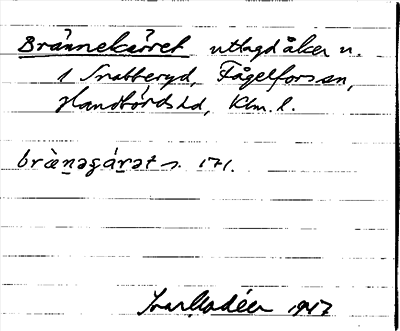 Brännekärret utlagd åker n.
1 Snabberyd, Fågelforsen,
Handbörds hd, Klm. l.
brænəgárət s. 171.
1947